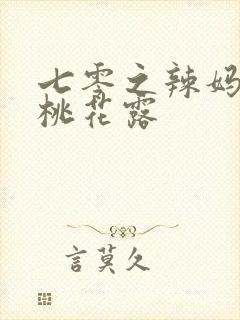 七零之辣妈
桃花露
言莫久